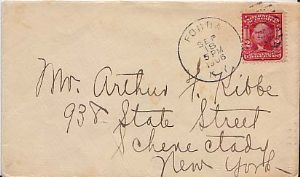 FONDA
SEP
5 PM
1906
N.Y.
Mr. Arthur F. Kibbe
938 State Street
Schenectady
New York